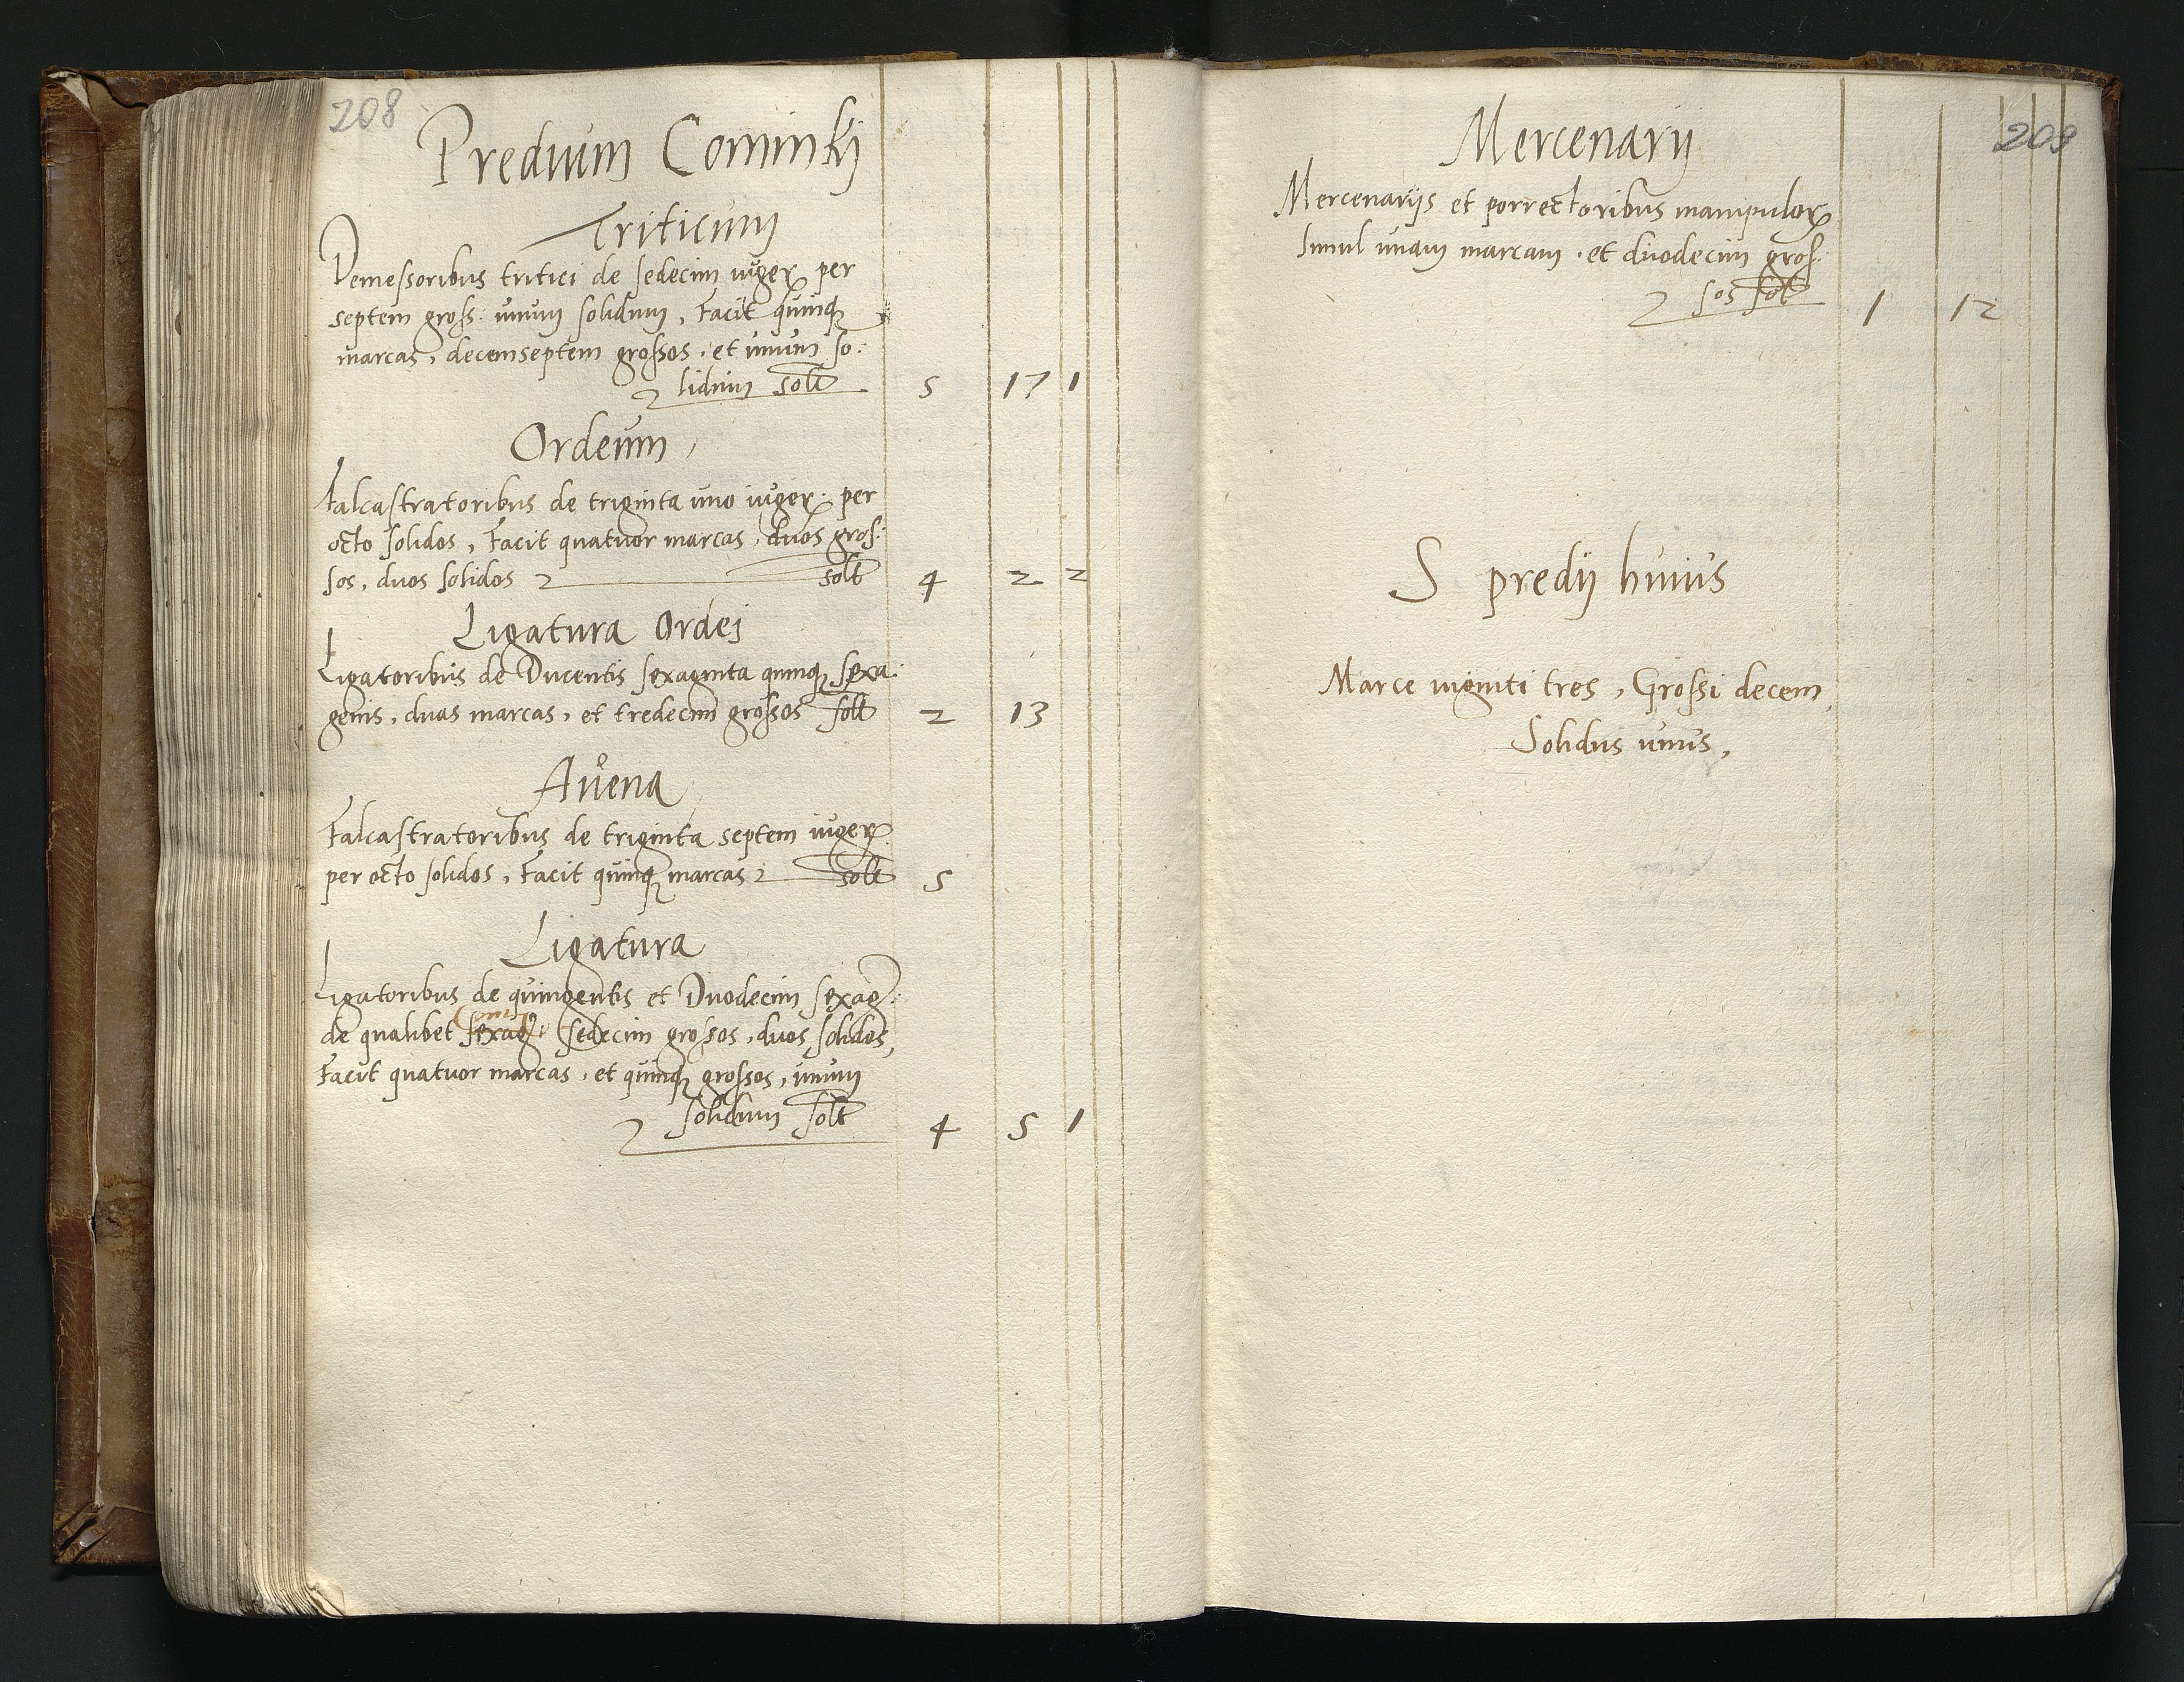 208
Predium Cominkj
Triticum
Demessoribus tritici de sedecim iuger. per
septem gross. unum solidum, Facit quinq
marcas, decemseptem grossos, et unum so:
lidum solt 5 17 1
Ordeum
Falcastratoribus de triginta uno iuger. per
octo solidos, Facit quatuor marcas, duos gros:
sos, duos solidos solt 4 2 2
Ligatura Ordej
Ligatoribus de Ducentis sexaginta quinq sexa:
genis, duas marcas, et tredecim grossos solt 2 13
Avena
Falcastratoribus de triginta septem iuger.
per octo solidos, Facit quinq marcas solt 5
Ligatura
Ligatoribus de quingentis et Duodecim sexag:
de qualibet sexag: sedecim grossos, duos solidos,
Facit quatuor marcas, et quinq grossos, unum
solidum solt 4 5 1
209
Mercenarij
Mercenarijs et porrectoribus manipulor.
simul unam marcam, et duodecim gros:
sos solt 1 12
S predij huius
Marce viginti tres, Grossi decem,
Solidus unus,